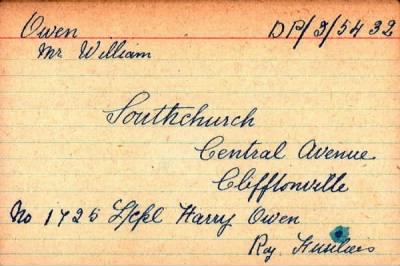 Owen DP/3/5432
Mr William
Southchurch
Central Avenue
Clifftonville
No 1725 L/cpl Harry Owen
Roy. Fusiliers